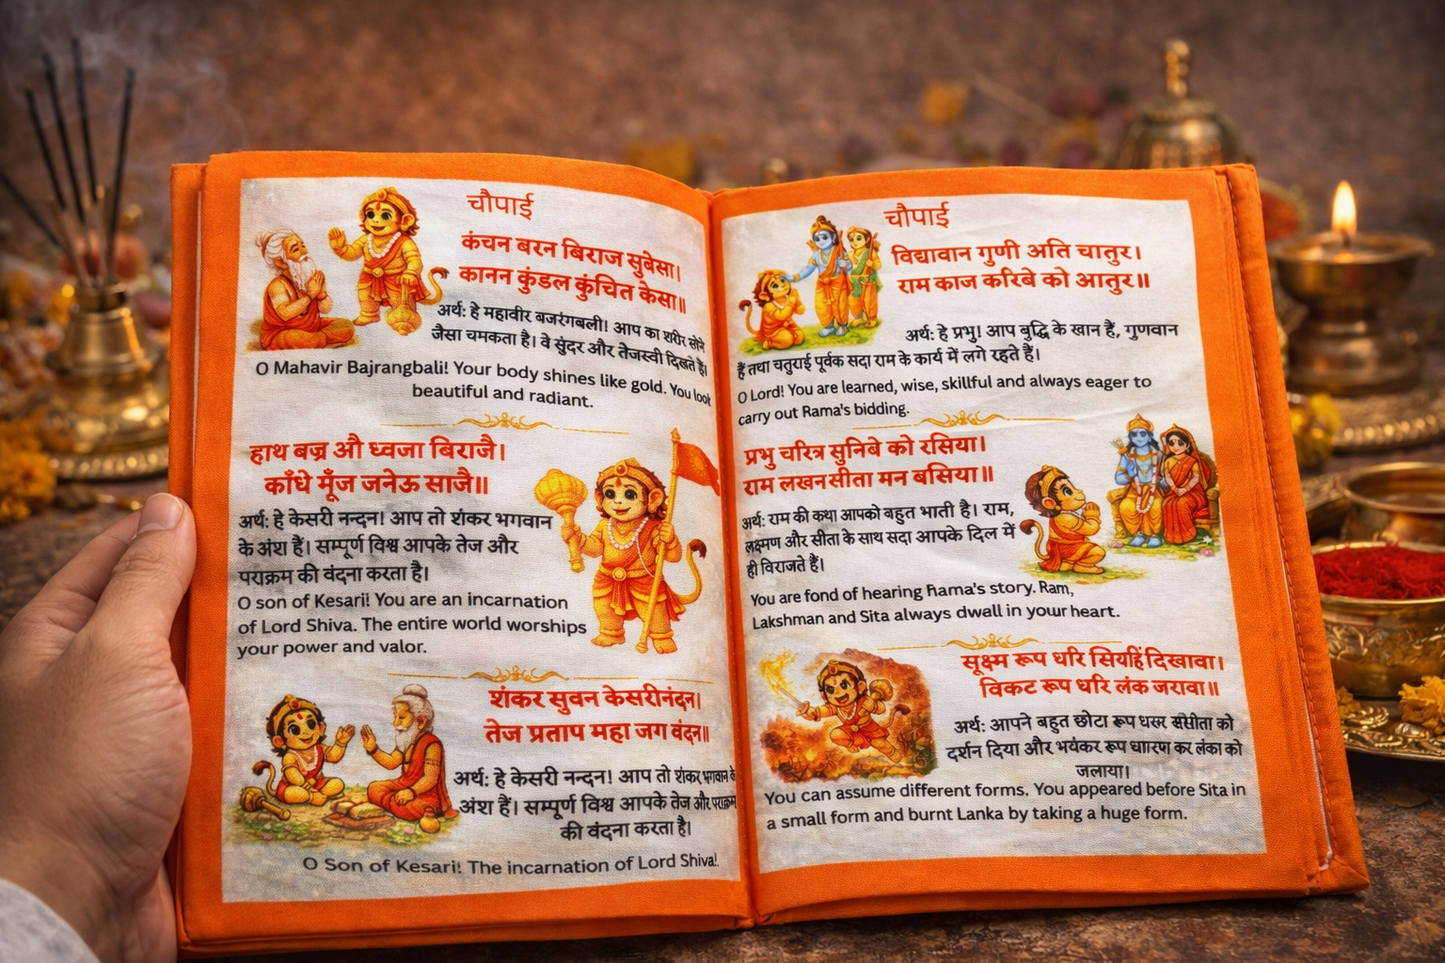 चौपाई
कंचन बरन बिराज सुबेसा।
कानन कुंडल कुंचित केसा॥
अर्थ: हे महावीर बजरंगबली! आप का शरीर सोने
जैसा चमकता है। वे सुंदर और तेजस्वी दिखते हैं।
O Mahavir Bajrangbali! Your body shines like gold. You look
beautiful and radiant.
हाथ बज्र औ ध्वजा बिराजै।
काँधे मूँज जनेऊ साजै॥
अर्थ: हे केसरी नन्दन! आप तो शंकर भगवान
के अंश हैं। सम्पूर्ण विश्व आपके तेज और
पराक्रम की वंदना करता है।
O son of Kesari! You are an incarnation
of Lord Shiva. The entire world worships
your power and valor.
शंकर सुवन केसरीनंदन।
तेज प्रताप महा जग वंदन॥
अर्थ: हे केसरी नन्दन! आप तो शंकर भगवान के
अंश हैं। सम्पूर्ण विश्व आपके तेज और पराक्रम
की वंदना करता है।
O Son of Kesari! The incarnation of Lord Shiva!
चौपाई
विद्यावान गुणी अति चातुर।
राम काज करिबे को आतुर॥
अर्थ: हे प्रभु! आप बुद्धि के खान हैं, गुणवान
हैं तथा चतुराई पूर्वक सदा राम के कार्य में लगे रहते हैं।
O Lord! You are learned, wise, skillful and always eager to
carry out Rama's bidding.
प्रभु चरित्र सुनिबे को रसिया।
राम लखनसीता मन बसिया॥
अर्थ: राम की कथा आपको बहुत भाती है। राम,
लक्ष्मण और सीता के साथ सदा आपके दिल में
ही विराजते हैं।
You are fond of hearing Rama's story. Ram,
Lakshman and Sita always dwall in your heart.
सूक्ष्म रूप धरि सियहिं दिखावा।
विकट रूप धरि लंक जरावा॥
अर्थ: आपने बहुत छोटा रूप सीता को
दर्शन दिया और भयंकर रूप धारण कर लंका को
जलाया।
You can assume different forms. You appeared before Sita in
a small form and burnt Lanka by taking a huge form.